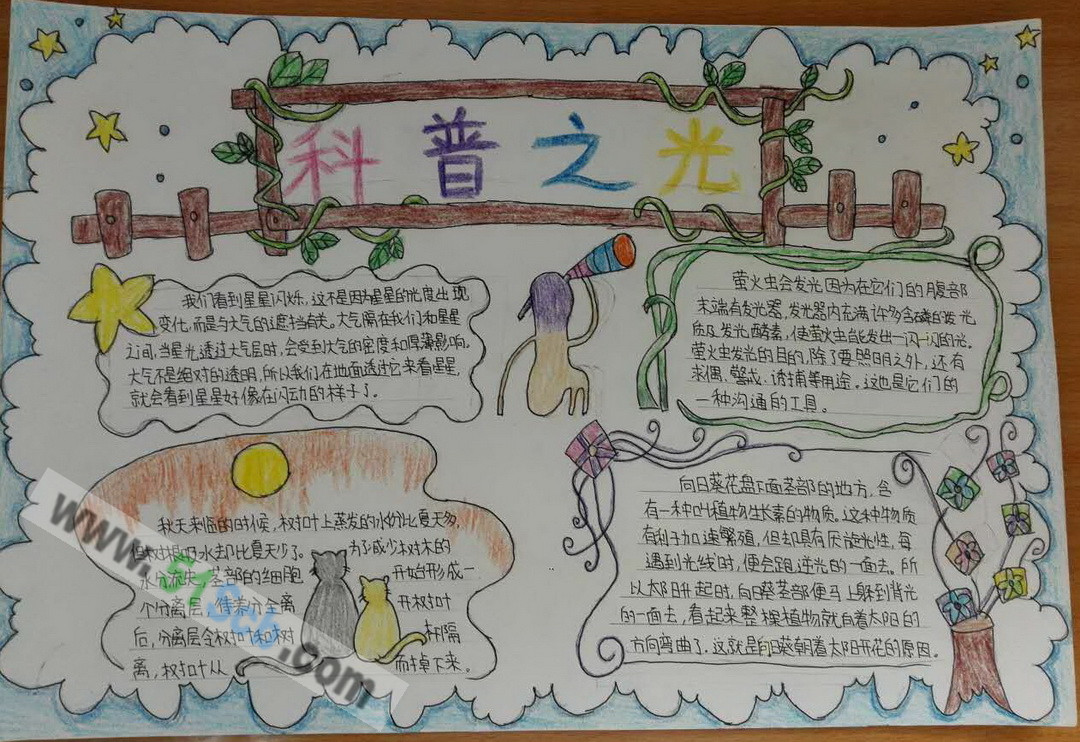 科普之光
我们看到星星闪烁，这不是因为星星的光度出现
变化，而是与大气的遮挡有关。大气隔在我们和星星
之间，当星光透过大气层时，会受到大气的密度和厚薄影响。
大气不是绝对的透明，所以我们在地面透过它来看星星，
就会看到星星好像在闪动的样子了。
萤火虫会发光因为在它们的腹部
末端有发光器，发光器内充满许多含磷的发光
质及发光酵素，使萤火虫能发出一闪一闪的光。
萤火虫发光的目的，除了要照明之外，还有
求偶、警戒、诱捕等用途。这也是它们的
一种沟通的工具。
秋天来临的时候，树叶上蒸发的水份比夏天多，
但树根吸水却比夏天少了。为了减少树木的
水分流失，茎部的细胞开始形成一
个分离层，待养分全离开树叶
后，分离层令树叶和树相隔
离，树叶从而掉下来。
向日葵花盘下面茎部的地方，含
有一种叫植物生长素的物质。这种物质
有利于加速繁殖，但却具有厌旋光性，每
遇到光线时，便会跑逆光的一面去。所
以太阳升起时，向日葵茎部便马上躲到背光
的一面去，看起来整棵植物就向着太阳的
方向弯曲了。这就是向日葵朝着太阳开花的原因。
www.51Sch.com